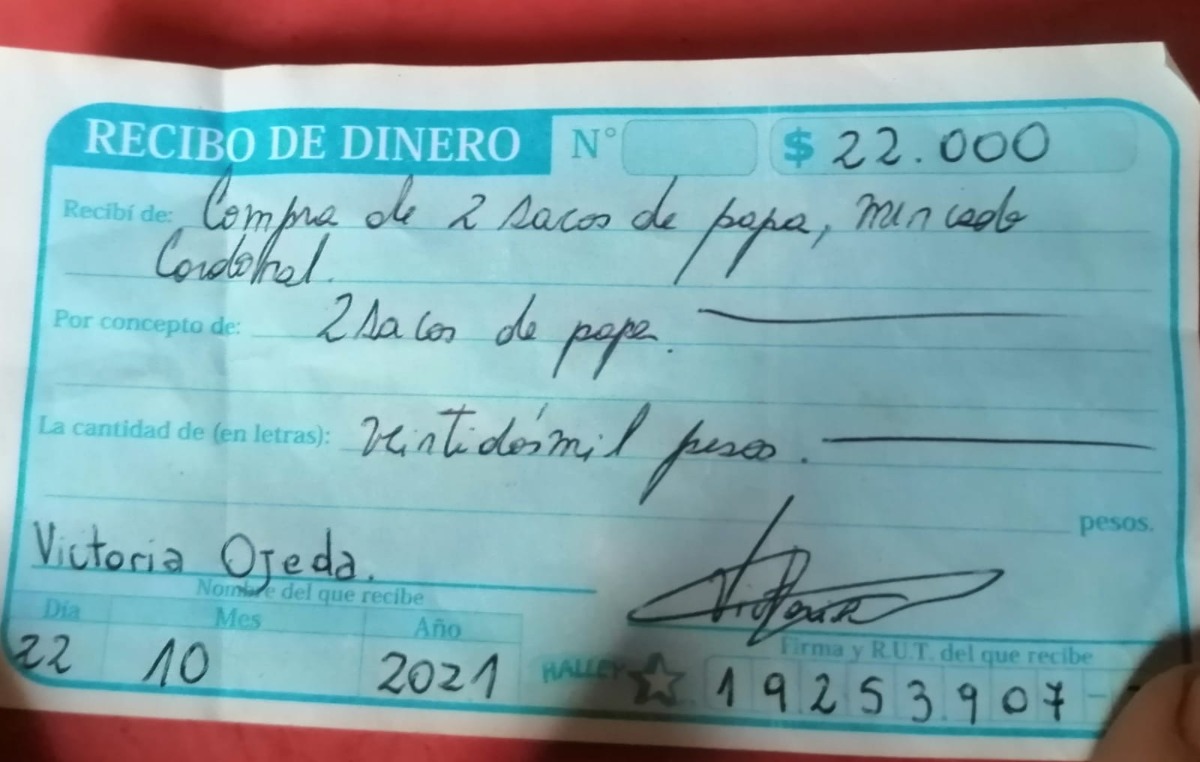 RECIBO DE DINERO N° $ 22.000
Recibí de: Compra de 2 sacos de papa, mercado
Cardonal.
Por concepto de: 2 sacos de papa.
La cantidad de (en letras): veintidósmil pesos.
pesos.
Victoria Ojeda.
Nombre del que recibe
Día Mes Año
22 10 2021
Firma y R.U.T. del que recibe
HALLEY 19253907 -